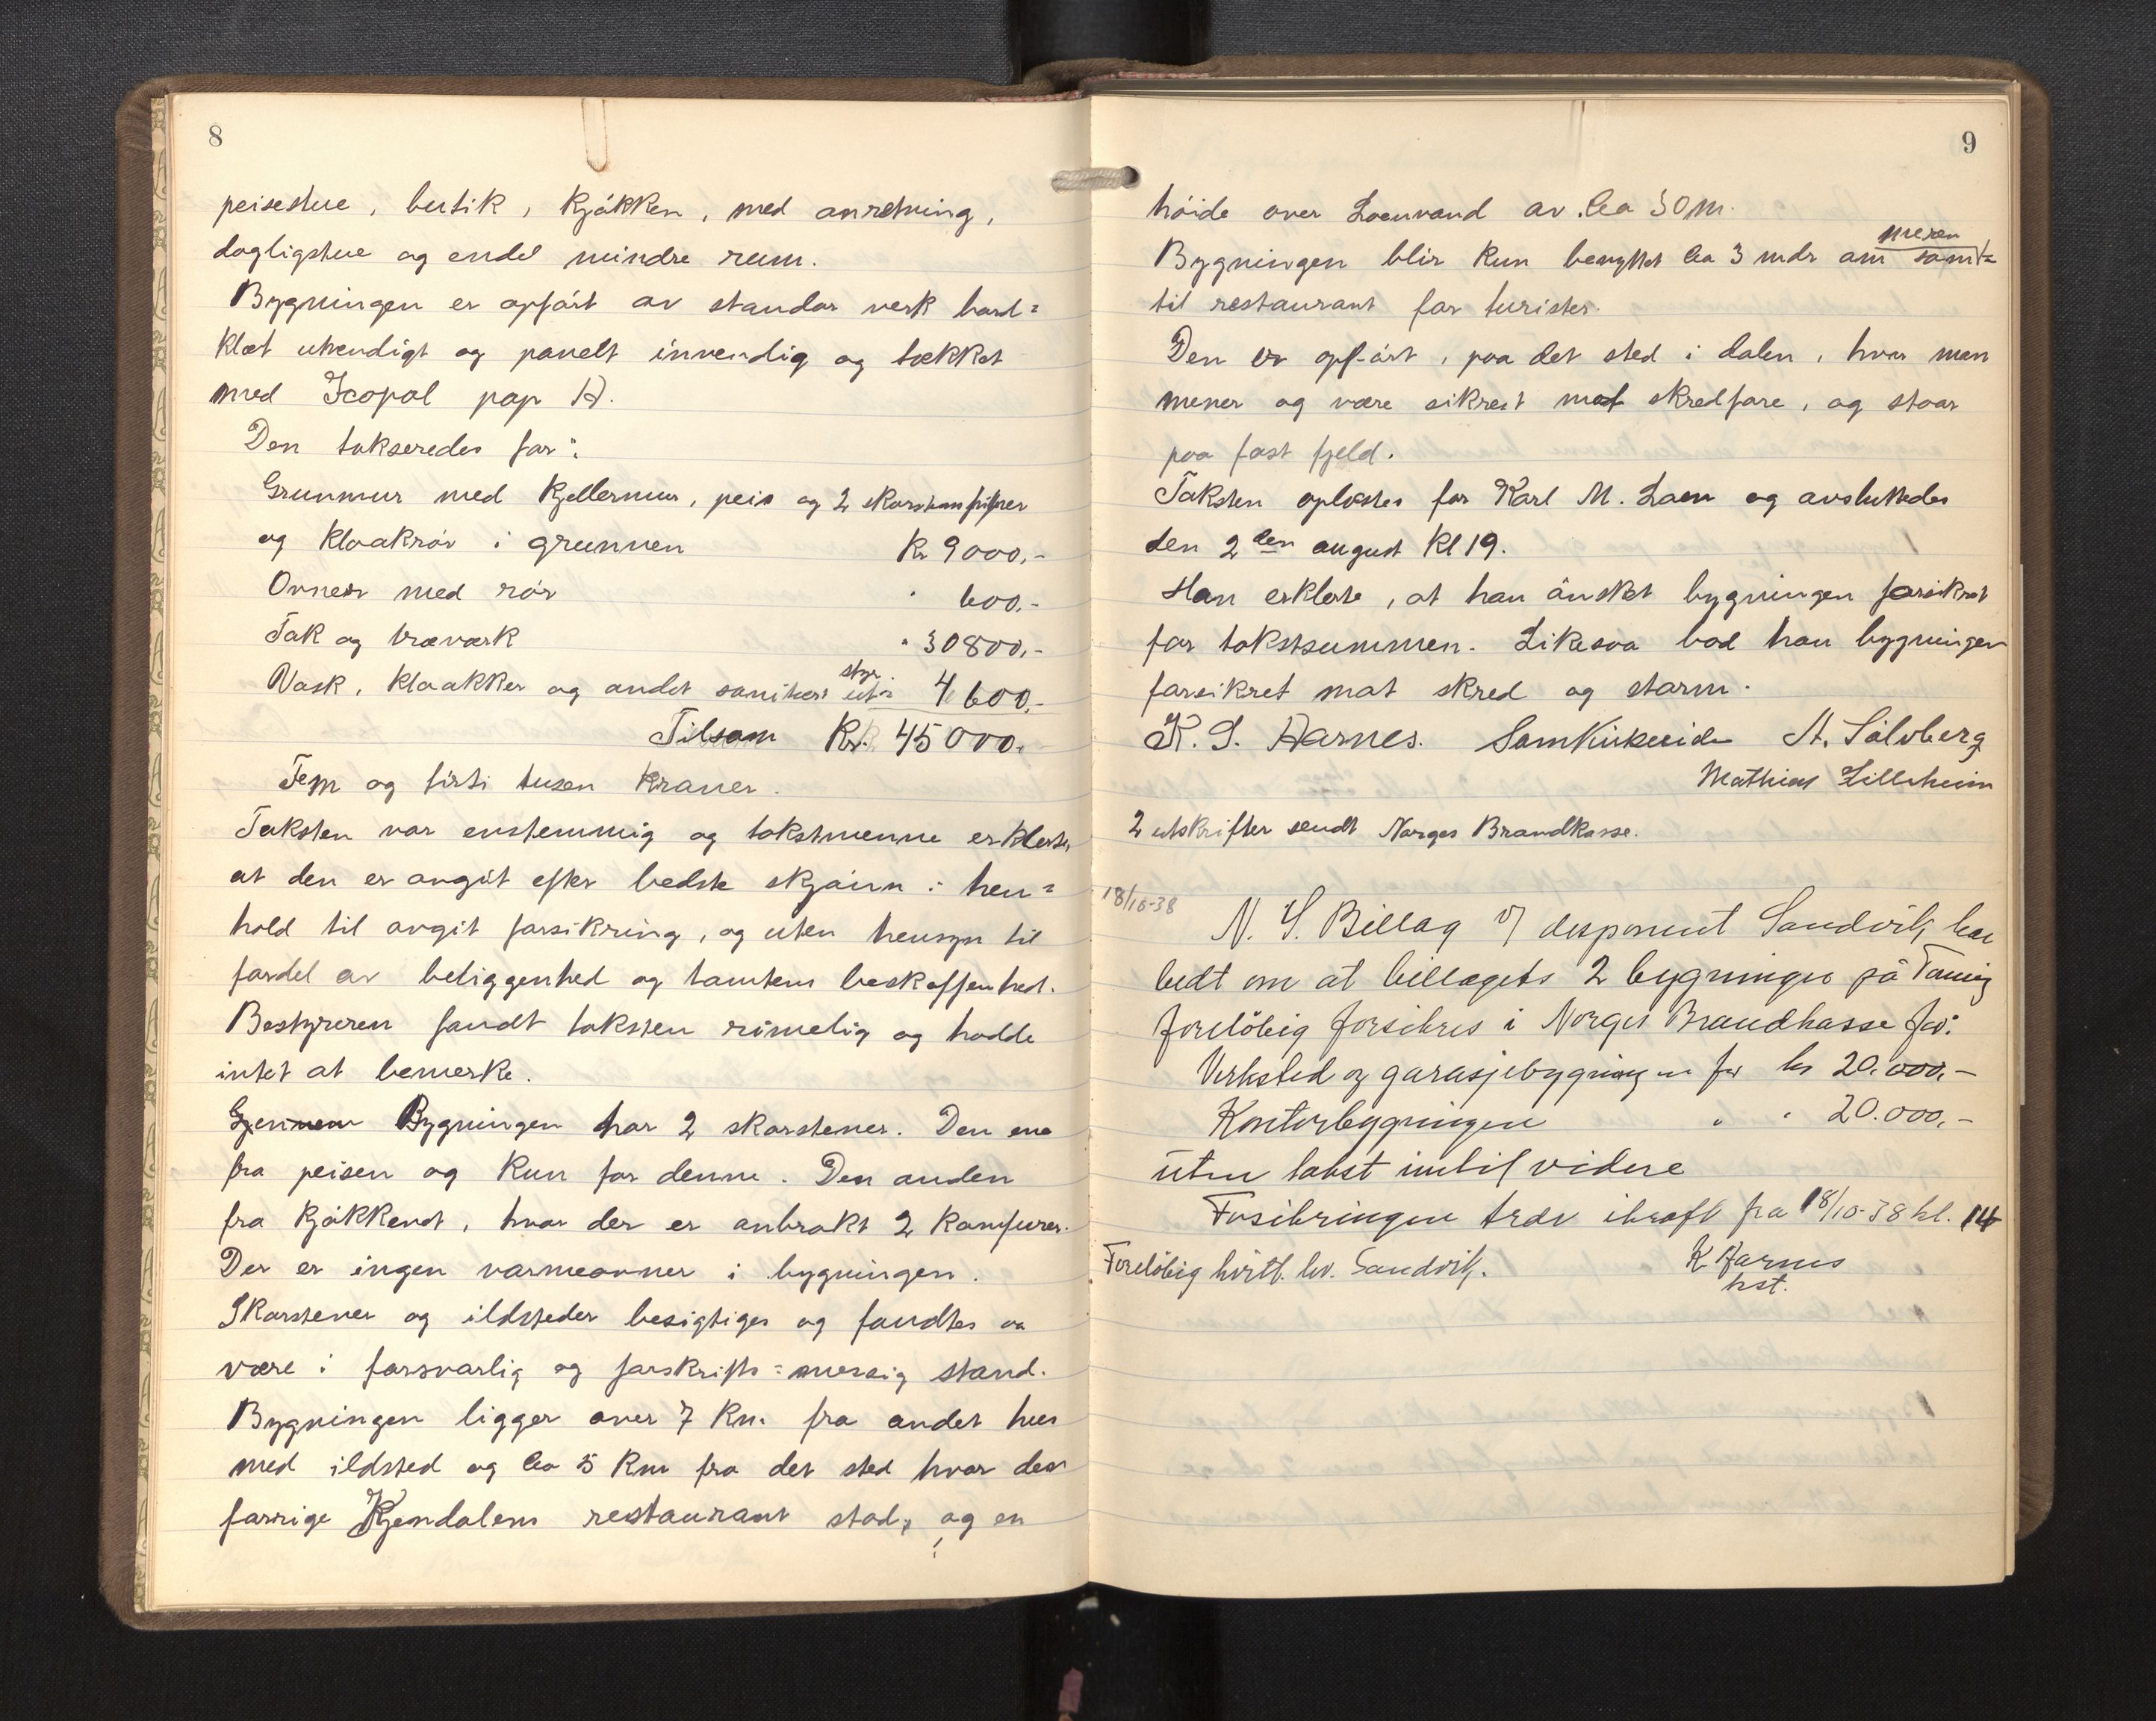 8
peisestue, butik, kjøkken, med anretning,
dagligstue og endel mindre rum.
Bygningen er opført av standar verk bord=
klæt utvendigt og panelt invendig og tækket
med Icopal pap A.
Den takseredes for:
Grunmur med kjellermur, peis og 2 skorstenspiper
og kloakrør i grunnen Kr 9000,-
Ovner med rør " 600.-
Tak og træværk " 30800,-
Vask, kloakker og andet sanitært utstyr 4600,-
Tilsam Kr. 45000.
Fem og firti tusen kroner.
Taksten var enstemmig og takstmenne erklerte
at den er avgit efter bedste skjønn i hen=
hold til avgit forsikring, og uten hensyn til
fordel av beliggenhed og tomtens beskaffenhed.
Bestyreren fandt taksten rimelig og hadde
intet at bemerke.
Bygningen har 2 skorstener. Den ene
fra peisen og kun for denne. Den anden
fra kjøkkenet, hvor der er anbrakt 2 komfurer.
Der er ingen varmeovner i bygningen.
Skorstener og ildsteder besigtiges og fandtes oa
være i forsvarlig og forskrifts=messig stand.
Bygningen ligger over 7 km. fra andet hus
med ildsted og ca 5 km fra det sted hvor den
forrige Kjendalens restaurant stod, og en
9
høide over Loenvand av ca 30 m.
Bygningen blir kun benyttet ca 3 mdr om sommeren
til restaurant for turister.
Den er opført, paa det sted i dalen, hvor man
mener og være sikrest mot skredfare, og staar
paa fast fjeld.
Taksten oplæstes for Karl M. Loen og avsluttedes
den 2den august Kl 19.
Han erklerte, at han ønsket bygningen forsikret
for takstsummen. Likesaa bad han bygningen
forsikret mot skred og storm.
K. S. Aarnes. Sam Kirkeeide A. Sølvberg
Mathias Lilleheim
2 utskrifter sendt Norges Brandkasse.
18/10-38
N. S. Billag v/ disponent Sandvik har
bedt om at billagets 2 bygninger på Tomig
foreløbig forsikres i Norges Brandkasse for:
Verksted og garasjebygningen for kr 20.000,-
Kontorbygningen " " 20.000,-
uten takst inntil videre
Forsikringen trær ikraft fra 18/10-38 kl. 14
Foreløbig kvitt. lev. Sandvik. K Aarnes
bst.